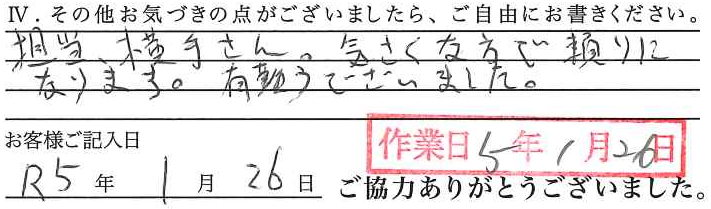 Ⅳ．その他お気づきの点がございましたら、ご自由にお書きください。
担当、横手さん。気さくな方で頼りに
なります。有難うございました。
お客様ご記入日
作業日 5年 1月26日
R5年 1月 26日 ご協力ありがとうございました。